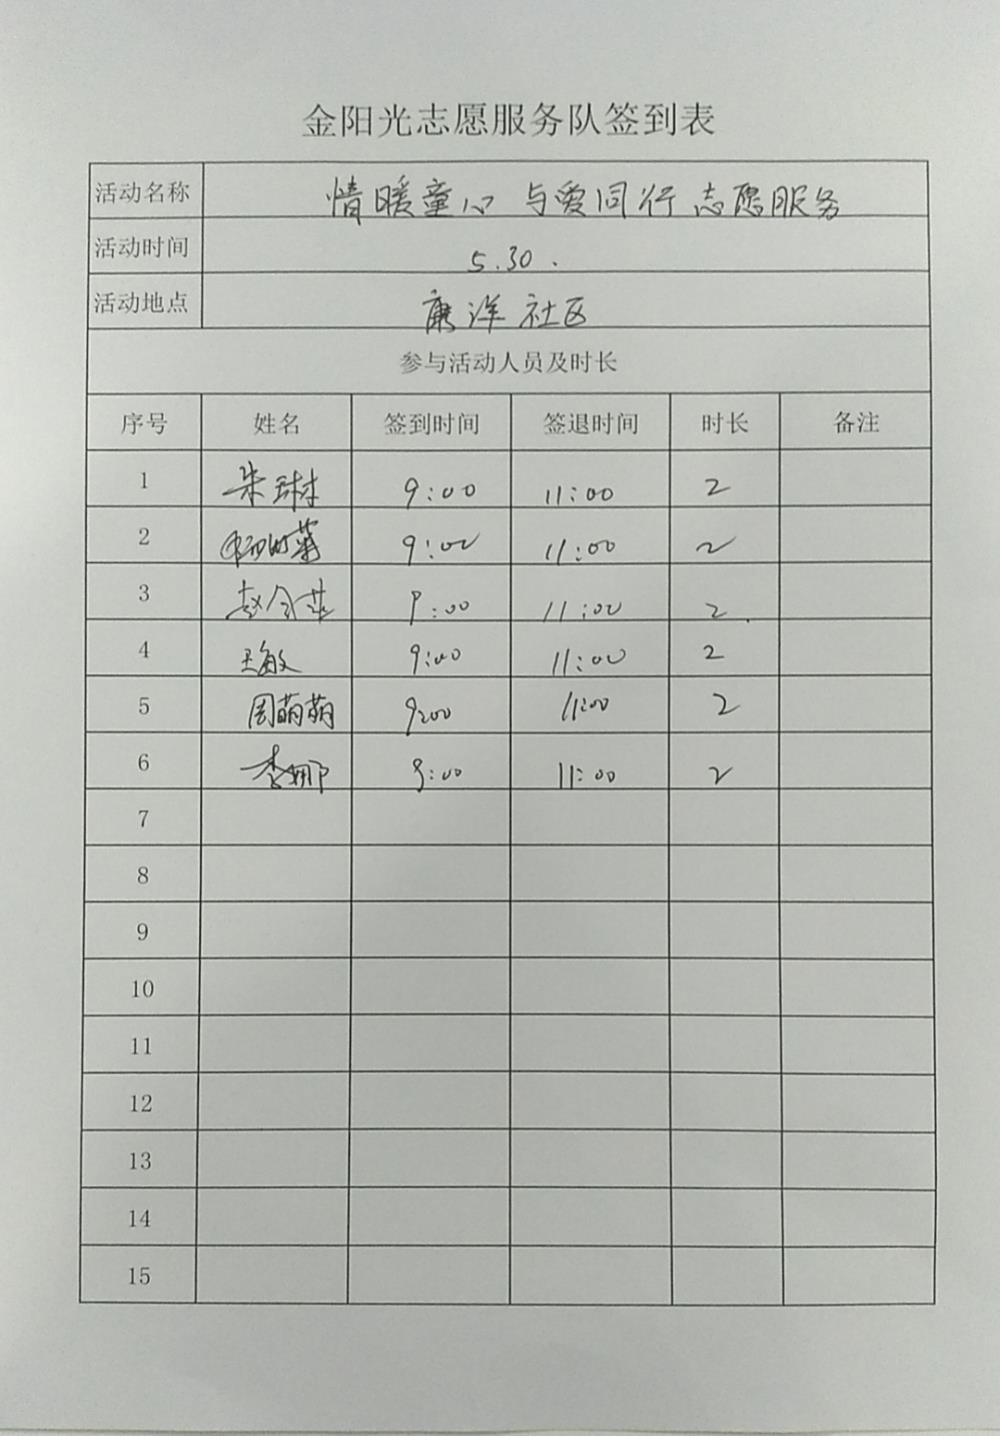 金阳光志愿服务队签到表
活动名称 情暖童心 与爱同行 志愿服务
活动时间 5.30.
活动地点 康洋社区
参与活动人员及时长
序号 姓名 签到时间 签退时间 时长 备注
1 朱琳 9:00 11:00 2
2 9:00 11:00 2
3 赵 9:00 11:00 2
4 王敏 9:00 11:00 2
5 周萌萌 9:00 11:00 2
6 李娜 9:00 11:00 2
7
8
9
10
11
12
13
14
15